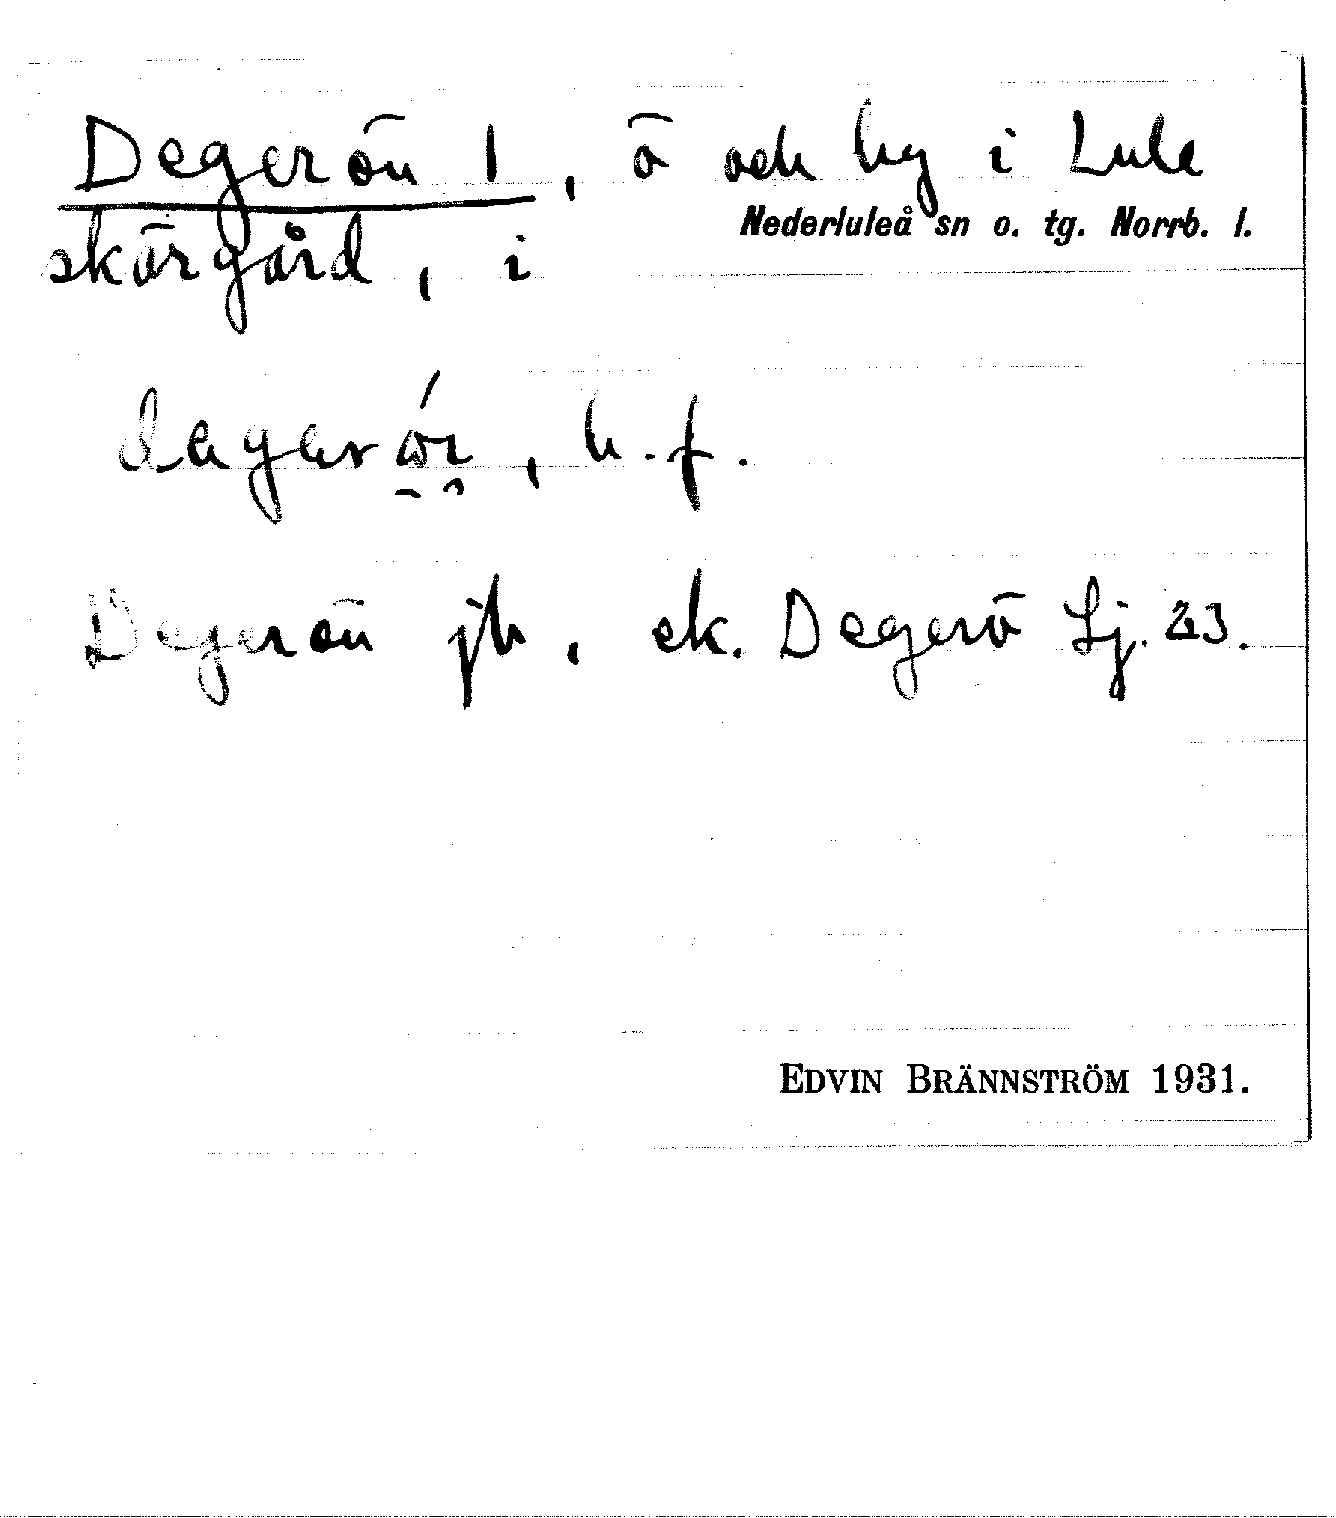 Degerön 1, ö och by i Lule
Nederluleå sn o. tg. Norrb. l.
skärgård, i
b. f.
Degerön jb, ek. Degerö Lj. 23.
EDVIN BRÄNNSTRÖM 1931.